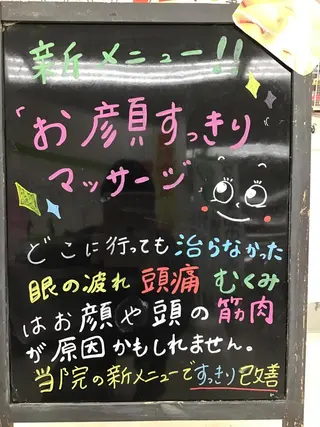 新メニュー!!
「お顔すっきり
マッサージ
どこに行っても治らなかった
眼の疲れ 頭痛 むくみ
はお顔や頭の筋肉
が原因かもしれません。
当院の新メニューですっきり改善